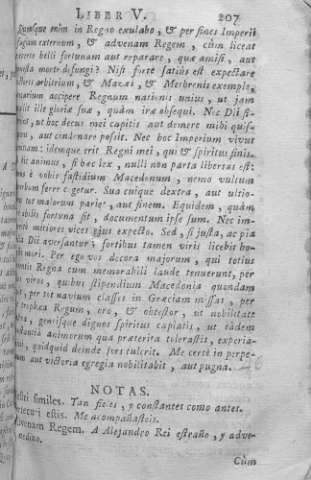 LIBER V. 207
Quousque enim in Regno exulabo, & per fines Imperii
fugiam externum, & advenam Regem, cùm liceat
belli fortunam aut reparare, quæ amisi, aut
morte defungi? Nisi fortè satius est expectare
arbitrium, & Mazæi, & Methrenis exemplo,
precarium accipere Regnum nationis unius, ut jam
ille gloriæ suæ, quàm iræ obsequi. Nec Dii si-
ut hoc decus mei capitis aut demere mibi quis-
aut condonare possit. Nec hoc Imperium vivus
idemque erit Regni mei, qui & spiritus finis.
animus, si hæc lex, nulli non parta libertas est:
è vobis fastidium Macedonum, nemo vultum
ferre cogetur. Sua cuique dextra, aut ultio-
tot malorum pariet, aut finem. Equidem, quàm
fortuna sit, documentum ipse sum. Nec im-
mitiores vices ejus expecto. Sed, si justa, ac pia
Dii aversantur; fortibus tamen viris licebit ho-
mori. Per ego vos decora majorum, qui totius
Regna cum memorabili laude tenuerunt, per
viros, quibus stipendium Macedonia quondam
per tot navium classes in Græciam missas, per
trophæa Regum, oro, & obtestor, ut nobilitate
gentisque dignos spiritus capiatis, ut eâdem
animorum qua præterita tolerastis, experia-
quidquid deinde fors tulerit. Me certè in perpe-
aut victoria egregia nobilitabit, aut pugna.
NOTAS.
similes. Tan fieles, y constantes como antes.
estis. Me acompañasteis.
Advenam Regem. A Alejandro Rei estraño, y adve-
nedizo.
Cùm